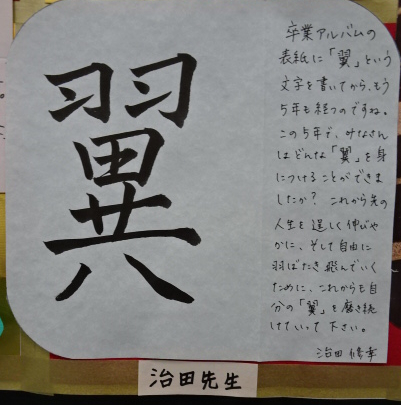 翼
卒業アルバムの
表紙に「翼」という
文字を書いてから、もう
5年も経つのですね。
この5年で、みなさん
はどんな「翼」を身
につけることができま
したか？これから先の
人生を逞しく伸びや
かに、そして自由に
羽ばたき飛んでいく
ために、これからも自
分の「翼」を磨き続
けていて下さい。
治田 修幸
治田先生